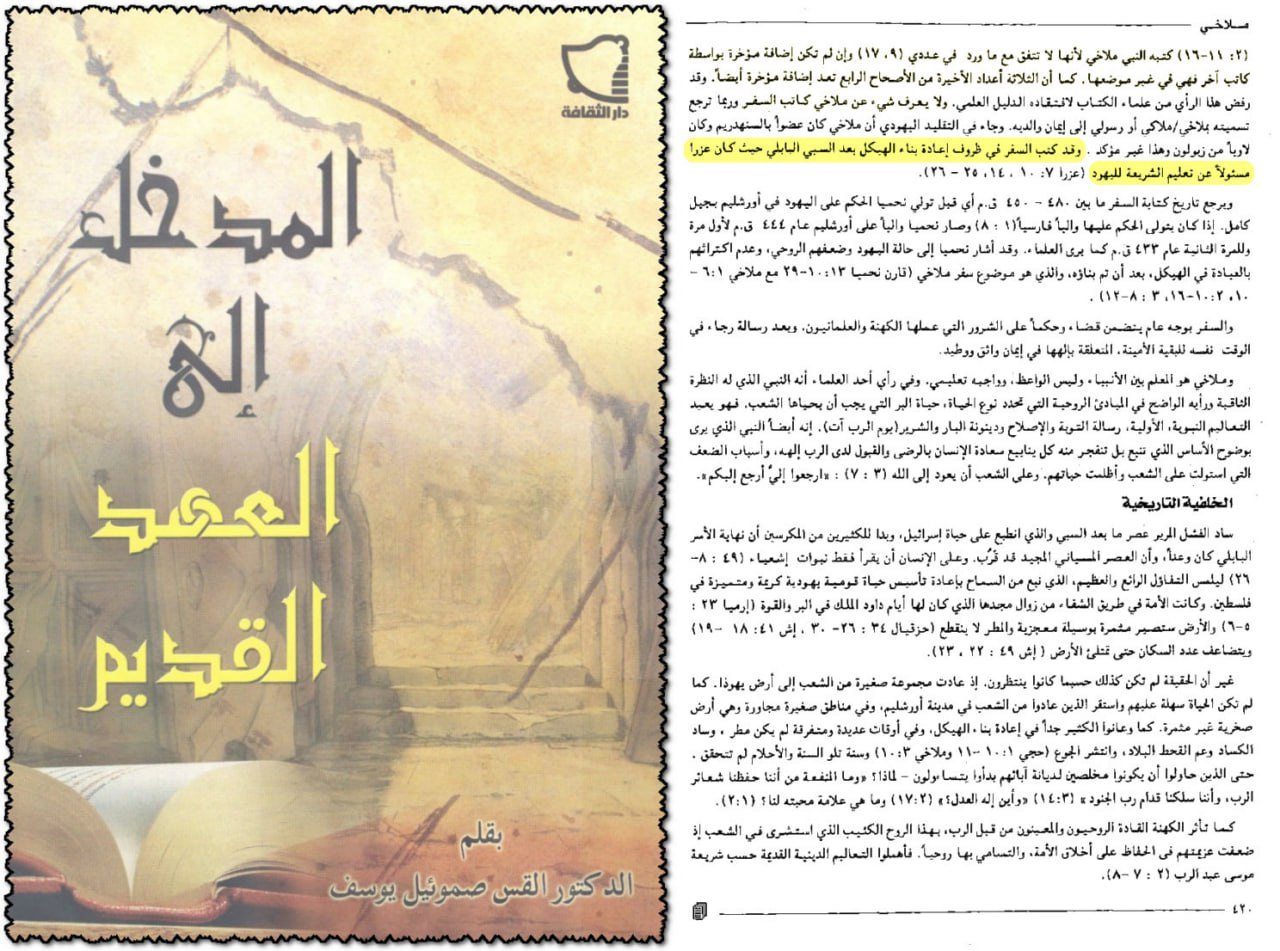 دار الثقافة
المدخل
إلى
العهد
القديم
بقلم
الدكتور القس صموئيل يوسف
ملاخي
(٢: ١١-١٦) كتبه النبي ملاخي لأنها لا تتفق مع ما ورد في عددي (٩، ١٧) وإن لم تكن إضافة مؤخرة بواسطة
كاتب آخر فهي في غير موضعها. كما أن الثلاثة أعداد الأخيرة من الأصحاح الرابع تعد إضافة مؤخرة أيضاً. وقد
رفض هذا الرأي من علماء الكتاب لافتقاده الدليل العلمي. ولا يعرف شيء عن ملاخي كاتب السفر وربما ترجع
تسميته بملاخي/ملاكي أو رسولي إلى إيمان والديه. وجاء في التقليد اليهودي أن ملاخي كان عضواً بالسنهدريم وكان
لاوياً من زبولون وهذا غير مؤكد . وقد كتب السفر في ظروف إعادة بناء الهيكل بعد السبي البابلي حيث كان عزرا
مسئولاً عن تعليم الشريعة لليهود (عزرا ٧: ١٠ ، ١٤، ٢٥ - ٢٦).
ويرجع تاريخ كتابة السفر ما بين ٤٨٠ - ٤٥٠ ق.م أي قبل تولي نحميا الحكم على اليهود في أورشليم بجيل
كامل. إذا كان يتولى الحكم عليها والياً فارسياً(١ : ٨) وصار نحميا والياً على أورشليم عام ٤٤٤ ق.م لأول مرة
وللمرة الثانية عام ٤٣٣ ق.م كما يرى العلماء. وقد أشار نحميا إلى حالة اليهود وضعفهم الروحي، وعدم اكتراثهم
بالعبادة في الهيكل، بعد أن تم بناؤه، والذي هو موضوع سفر ملاخي (قارن نحميا ١٣:١٠-٢٩ مع ملاخي ٦:١ -
١٠، ١٠:٢-١٦، ٣ : ٨-١٢) .
والسفر بوجه عام يتضمن قضاء وحكماً على الشرور التي عملها الكهنة والعلمانيون. ويعد رسالة رجاء في
الوقت نفسه للبقية الأمينة، المتعلقة بإلهها في إيمان واثق ووطيد.
وملاخي هو المعلم بين الأنبياء وليس الواعظ، وواجبه تعليمي. وفي رأي أحد العلماء أنه النبي الذي له النظرة
الثاقبة ورأيه الواضح في المبادئ الروحية التي تحدد نوع الحياة، حياة البر التي يجب أن يحياها الشعب. فهو يعيد
التعاليم النبوية، الأولية، رسالة التوبة والإصلاح ودينونة البار والشرير(يوم الرب آت). إنه أيضاً النبي الذي يرى
بوضوح الأساس الذي تنبع بل تنفجر منه كل ينابيع سعادة الإنسان بالرضى والقبول لدى الرب إلهه، وأسباب الضعف
التي استولت على الشعب وأظلمت حياتهم. وعلى الشعب أن يعود إلى الله (٣ : ٧) : «ارجعوا إليّ أرجع إليكم».
الخلفية التاريخية
ساد الفشل المرير عصر ما بعد السبي والذي انطبع على حياة إسرائيل، وبدا للكثيرين من المكرسين أن نهاية الأمر
البابلي كان وعداً، وأن العصر المسياني المجيد قد قرُب. وعلى الإنسان أن يقرأ فقط نبوات إشعياء (٤٩ : ٨-
٢٦) ليلمس التفاؤل الرائع والعظيم، الذي نبع من السماح بإعادة تأسيس حياة قومية يهودية كريمة ومتميزة في
فلسطين. وكانت الأمة في طريق الشفاء من زوال مجدها الذي كان لها أيام داود الملك في البر والقوة (إرميا ٢٣ :
٥-٦) والأرض ستصير مثمرة بوسيلة معجزية والمطر لا ينقطع (حزقيال ٣٤ : ٢٦- ٣٠ ، إش ٤١: ١٨ -١٩)
ويتضاعف عدد السكان حتى تمتلئ الأرض ( إش ٤٩ : ٢٢ ، ٢٣).
غير أن الحقيقة لم تكن كذلك حسبما كانوا ينتظرون. إذ عادت مجموعة صغيرة من الشعب إلى أرض يهوذا. كما
لم تكن الحياة سهلة عليهم واستقر الذين عادوا من الشعب في مدينة أورشليم، وفي مناطق صغيرة مجاورة وهي أرض
صخرية غير مثمرة. كما وعانوا الكثير جداً في إعادة بناء الهيكل، وفي أوقات عديدة ومتفرقة لم يكن مطر ، وساد
الكساد وعم القحط البلاد، وانتشر الجوع (حجي ١٠:١ -١١ وملاخي ١٠:٣) وسنة تلو السنة والأحلام لم تتحقق .
حتى الذين حاولوا أن يكونوا مخلصين لديانة آبائهم بدأوا يتساءلون - لماذا؟ «وما المنفعة من أننا حفظنا شعائر
الرب، وأننا سلكنا قدام رب الجنود» (١٤:٣) «وأين إله العدل؟» (١٧:٢) وما هي علامة محبته لنا؟ (٢:١).
كما تأثر الكهنة القادة الروحيون والمعينون من قبل الرب، بهذا الروح الكئيب الذي استشرى في الشعب إذ
ضعفت عزيمتهم في الحفاظ على أخلاق الأمة، والتسامي بها روحياً. فأهملوا التعاليم الدينية القديمة حسب شريعة
موسى عبد الرب (٢ : ٧ -٨).
٤٢٠